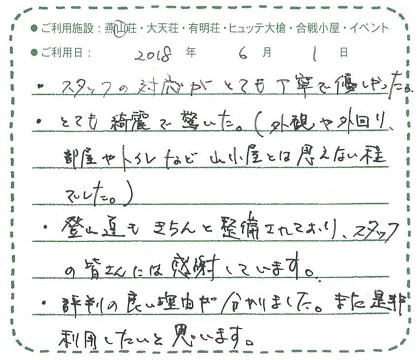 ●ご利用施設：燕山荘・大天荘・有明荘・ヒュッテ大槍・合戦小屋・イベント
●ご利用日： 2018 年 6 月 1 日
・スタッフの対応がとても丁寧で優しかった。
・とても綺麗で驚いた。(外観や外回り、
部屋やトイレなど山小屋とは思えない程
でした。)
・登山道もきちんと整備されており、スタッフ
の皆さんには感謝しています。
・評判の良い理由が分かりました。また是非
利用したいと思います。